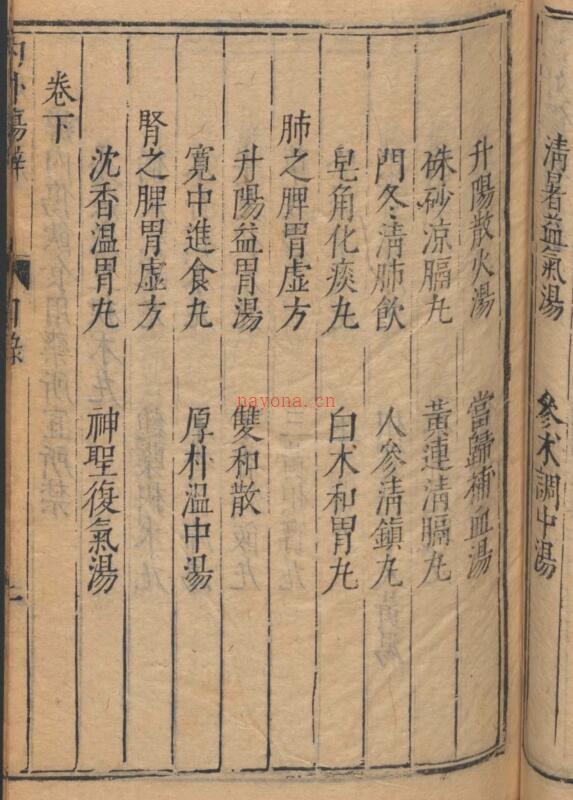 清暑益氣湯 參术調中湯
升陽散火湯 當歸補血湯
硃砂涼膈丸 黃連清膈丸
門冬清肺飲 人參清鎮丸
皂角化痰丸 白术和胃丸
肺之脾胃虛方
升陽益胃湯 雙和散
寬中進食丸 厚朴温中湯
腎之脾胃虛方
沈香温胃丸 神聖復氣湯
卷下
内外傷辨 目錄
nayona.cn